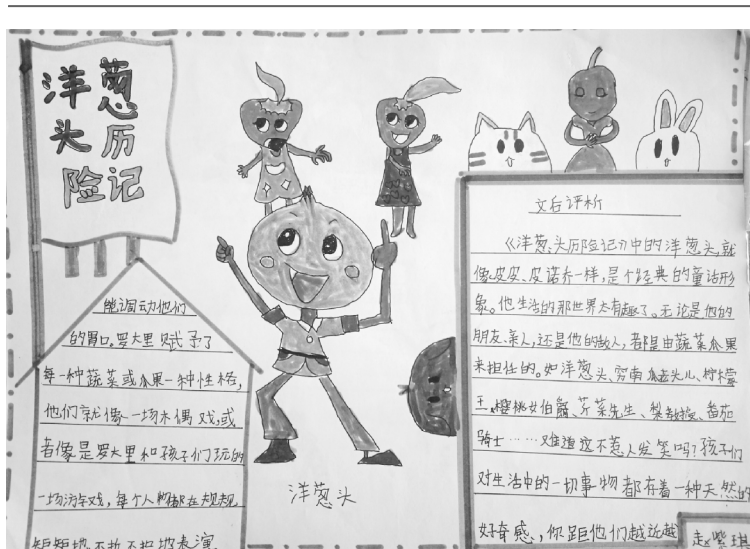 洋葱
头历
险记
能调动他们
的胃口。罗大里赋予了
每一种蔬菜或瓜果一种性格,
他们就像一场木偶戏,或
者像是罗大里和孩子们玩的
一场游戏,每个人物都在规规
矩矩地不折不扣地表演
洋葱头
文后评析
《洋葱头历险记》中的洋葱头就
像皮皮、皮诺乔一样,是个经典的童话形
象。他生活的那世界太有趣了。无论是他的
朋友亲人,还是他的敌人,都是由蔬菜瓜果
来担任的。如洋葱头、穷南瓜老头儿、柠檬
王、樱桃女伯爵、芹菜先生、梨教授、番茄
骑士……难道这不惹人发笑吗?孩子们
对生活中的一切事物都存着一种天然的
好奇感、你距他们越近越
赵紫琪